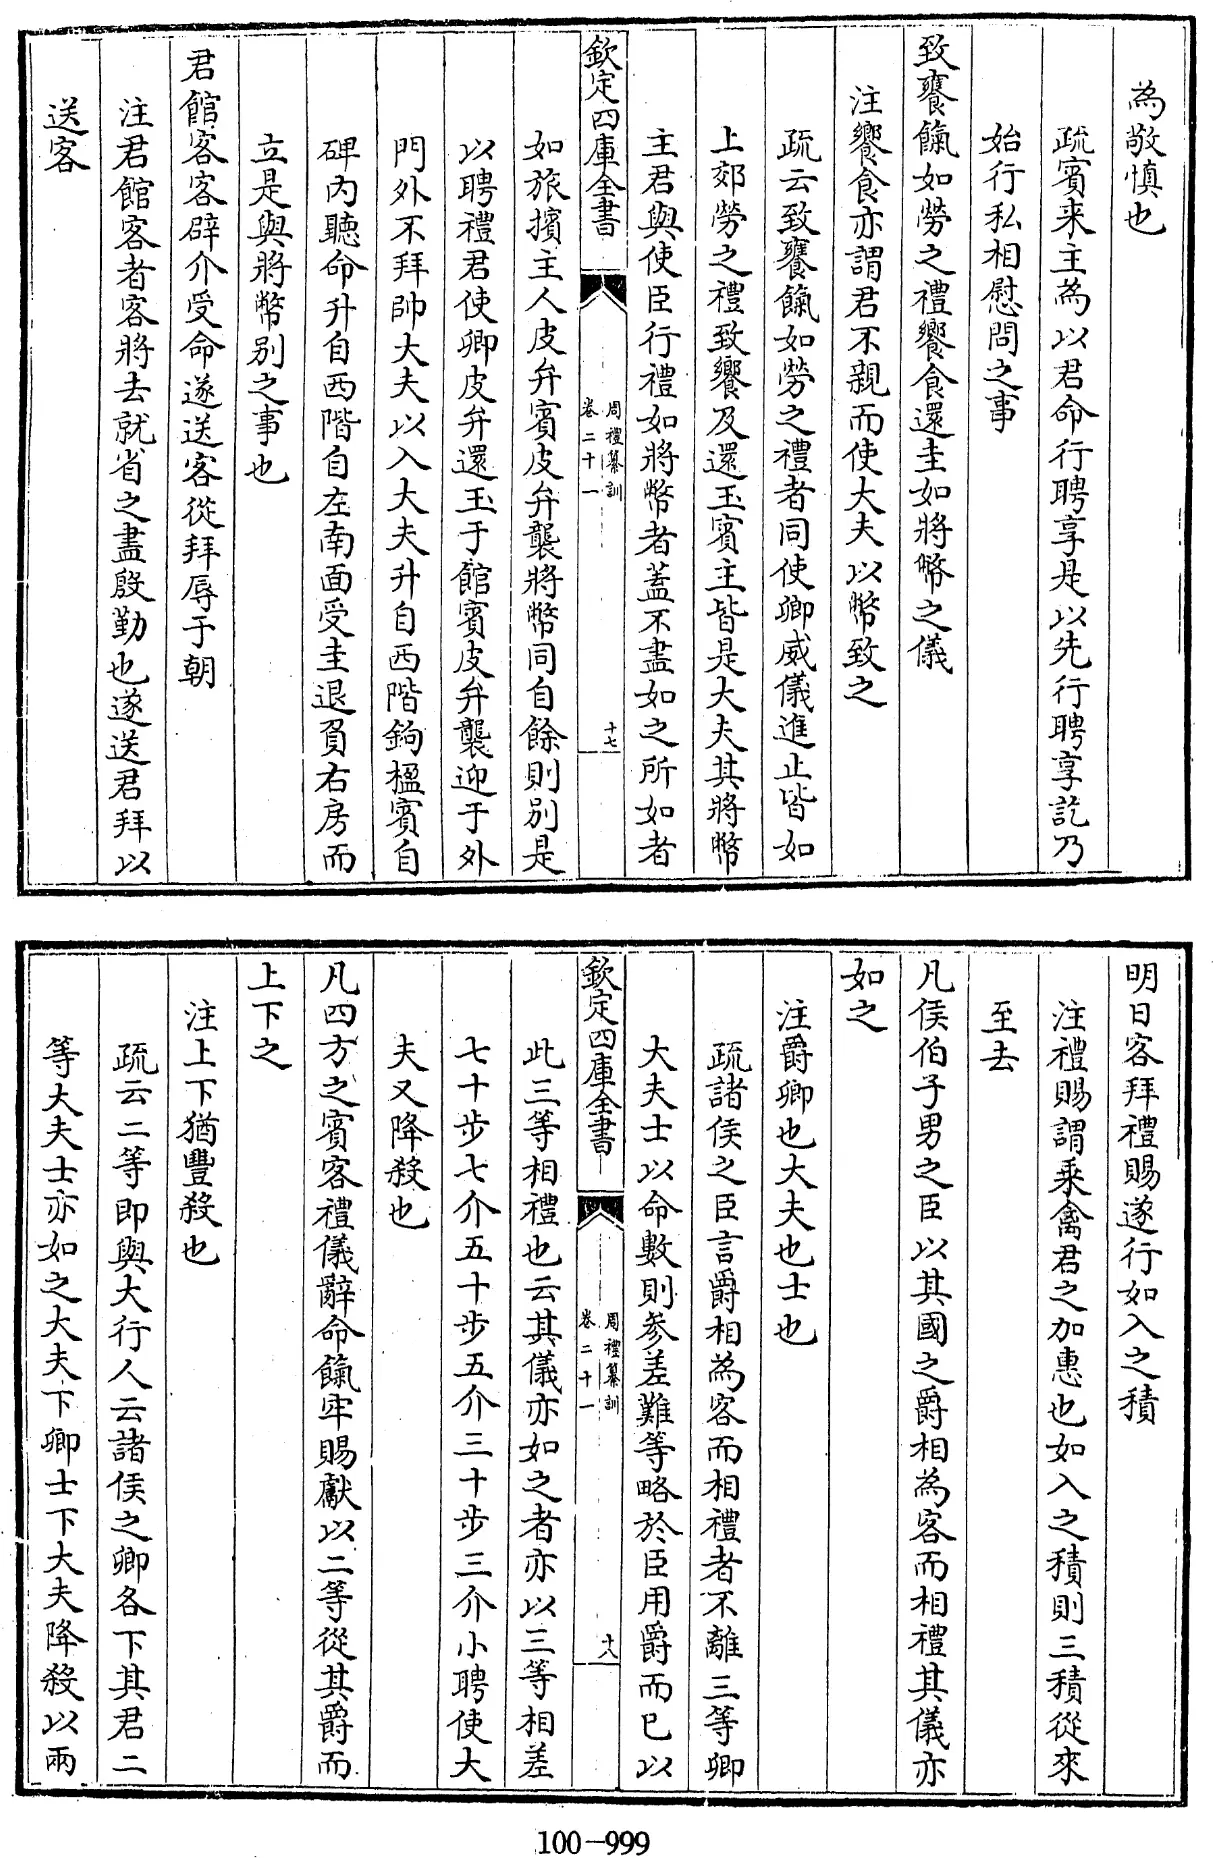 為敬慎也
疏賓来主為以君命行聘享是以先行聘享訖乃
始行私相慰問之事
致饔餼如勞之禮饗食還圭如將幣之儀
注饗食亦謂君不親而使大夫以幣致之
疏云致饔餼如勞之禮者同使卿威儀進止皆如
上郊勞之禮致饗及還玉賓主皆是大夫其將幣
主君與使臣行禮如將幣者蓋不盡如之所如者
欽定四庫全書
周禮纂訓
卷二十一
十七
如旅擯主人皮弁賓皮弁襲將幣同自餘則别是
以聘禮君使卿皮弁還玉于館賓皮弁襲迎于外
門外不拜帥大夫以入大夫升自西階鉤楹賓自
碑内聽命升自西階自左南面受圭退負右房而
立是與將幣别之事也
君館客客辟介受命遂送客從拜辱于朝
注君館客者客將去就省之盡殷勤也遂送君拜以
送客
明日客拜禮賜遂行如入之積
注禮賜謂乗禽君之加惠也如入之積則三積從來
至去
凡侯伯子男之臣以其國之爵相為客而相禮其儀亦
如之
注爵卿也大夫也士也
疏諸侯之臣言爵相為客而相禮者不離三等卿
大夫士以命數則参差難等略於臣用爵而已以
欽定四庫全書
周禮纂訓
卷二十一
十八
此三等相禮也云其儀亦如之者亦以三等相差
七十步七介五十步五介三十步三介小聘使大
夫又降殺也
凡四方之賓客禮儀辭命餼牢賜獻以二等從其爵而
上下之
注上下猶豐殺也
疏云二等即與大行人云諸侯之卿各下其君二
等大夫士亦如之大夫下卿士下大夫降殺以兩
100-999